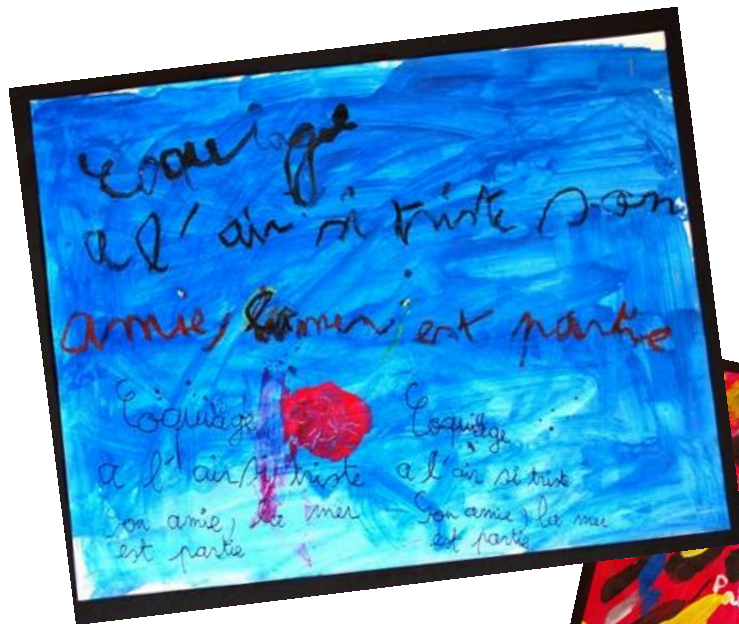 Coquillage
a l'air si triste son
amie, la mer est partie
Coquillage
a l'air si triste
Son amie, la mer
est partie
Coquillage
a l'air si triste
Son amie, la mer
est partie
Pa